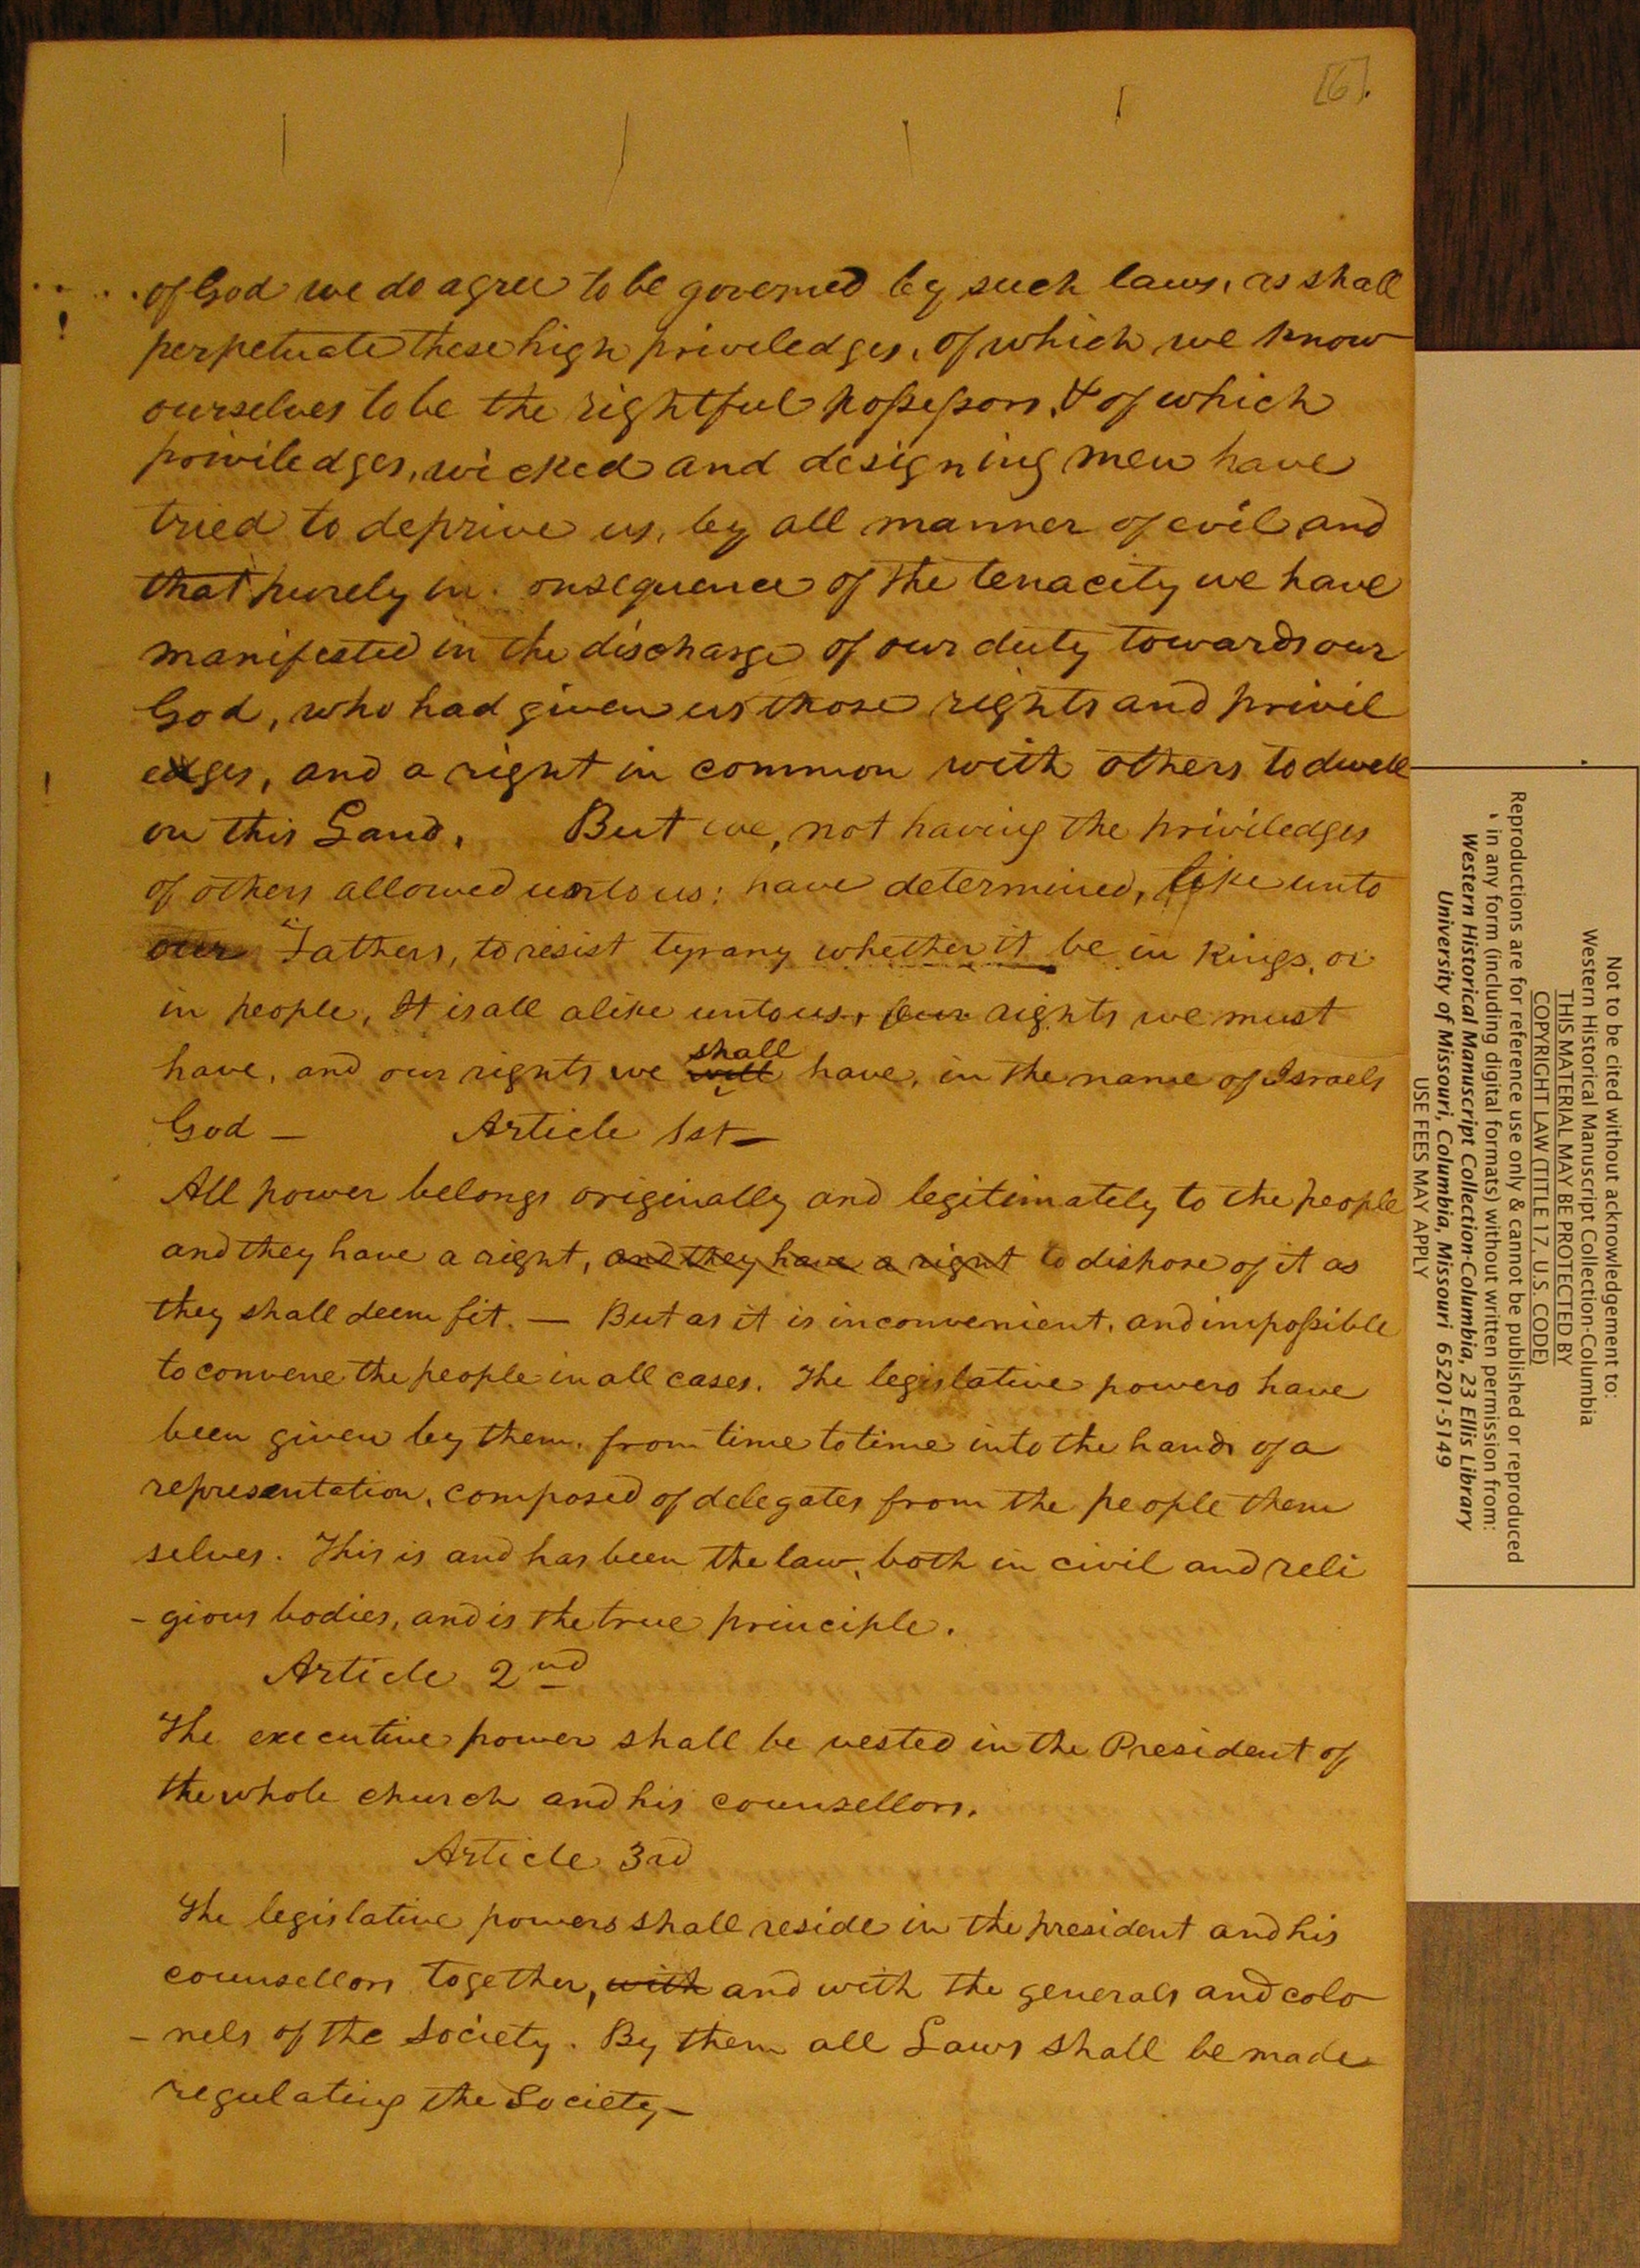 [6].
of God we do agree to be governed by such laws, as shall
perpetuate these high priveledges, of which we know
ourselves to be the rightful possessors, & of which
priviledges, wicked and designing men have
tried to deprive us, by all manner of evil and
that purely in onsequence of the tenacity we have
manifested in the discharge of our duty towards our
God, who had given us those rights and privil
edges, and a right in common with others to dwell
on this Land. But we, not having the priviledges
of others allowed unto us; have determined, like unto
our Fathers, to resist tyrany whether it be in Kings, or
in people, It is all alike unto us, our rights we must
have, and our rights we will shall have, in the name of Israels
God — Article 1st—
All power belongs originally and legitimately to the people
and they have a right, and they have a right to dispose of it as
they shall deem fit. — But as it is inconvenient, and impossible
to convene the people in all cases. The legislative powers have
been given by them, from time to time into the hands of a
representation, composed of delegates from the people them
selves. This is and has been the law, both in civil and reli
- gious bodies, and is the true principle.
Article 2nd
The executive power shall be vested in the President of
the whole church and his counsellors.
Article 3rd
The legislative powers shall reside in the president and his
counsellors together, with and with the generals and colo
- nels of the Society. By them all Laws shall be made
regulating the Society—
Not to be cited without acknowledgement to:
Western Historical Manuscript Collection-Columbia
THIS MATERIAL MAY BE PROTECTED BY
COPYRIGHT LAW (TITLE 17, U.S. CODE)
Reproductions are for reference use only & cannot be published or reproduced
in any form (including digital formats) without written permission from:
Western Historical Manuscript Collection-Columbia, 23 Ellis Library
University of Missouri, Columbia, Missouri 65201-5149
USE FEES MAY APPLY